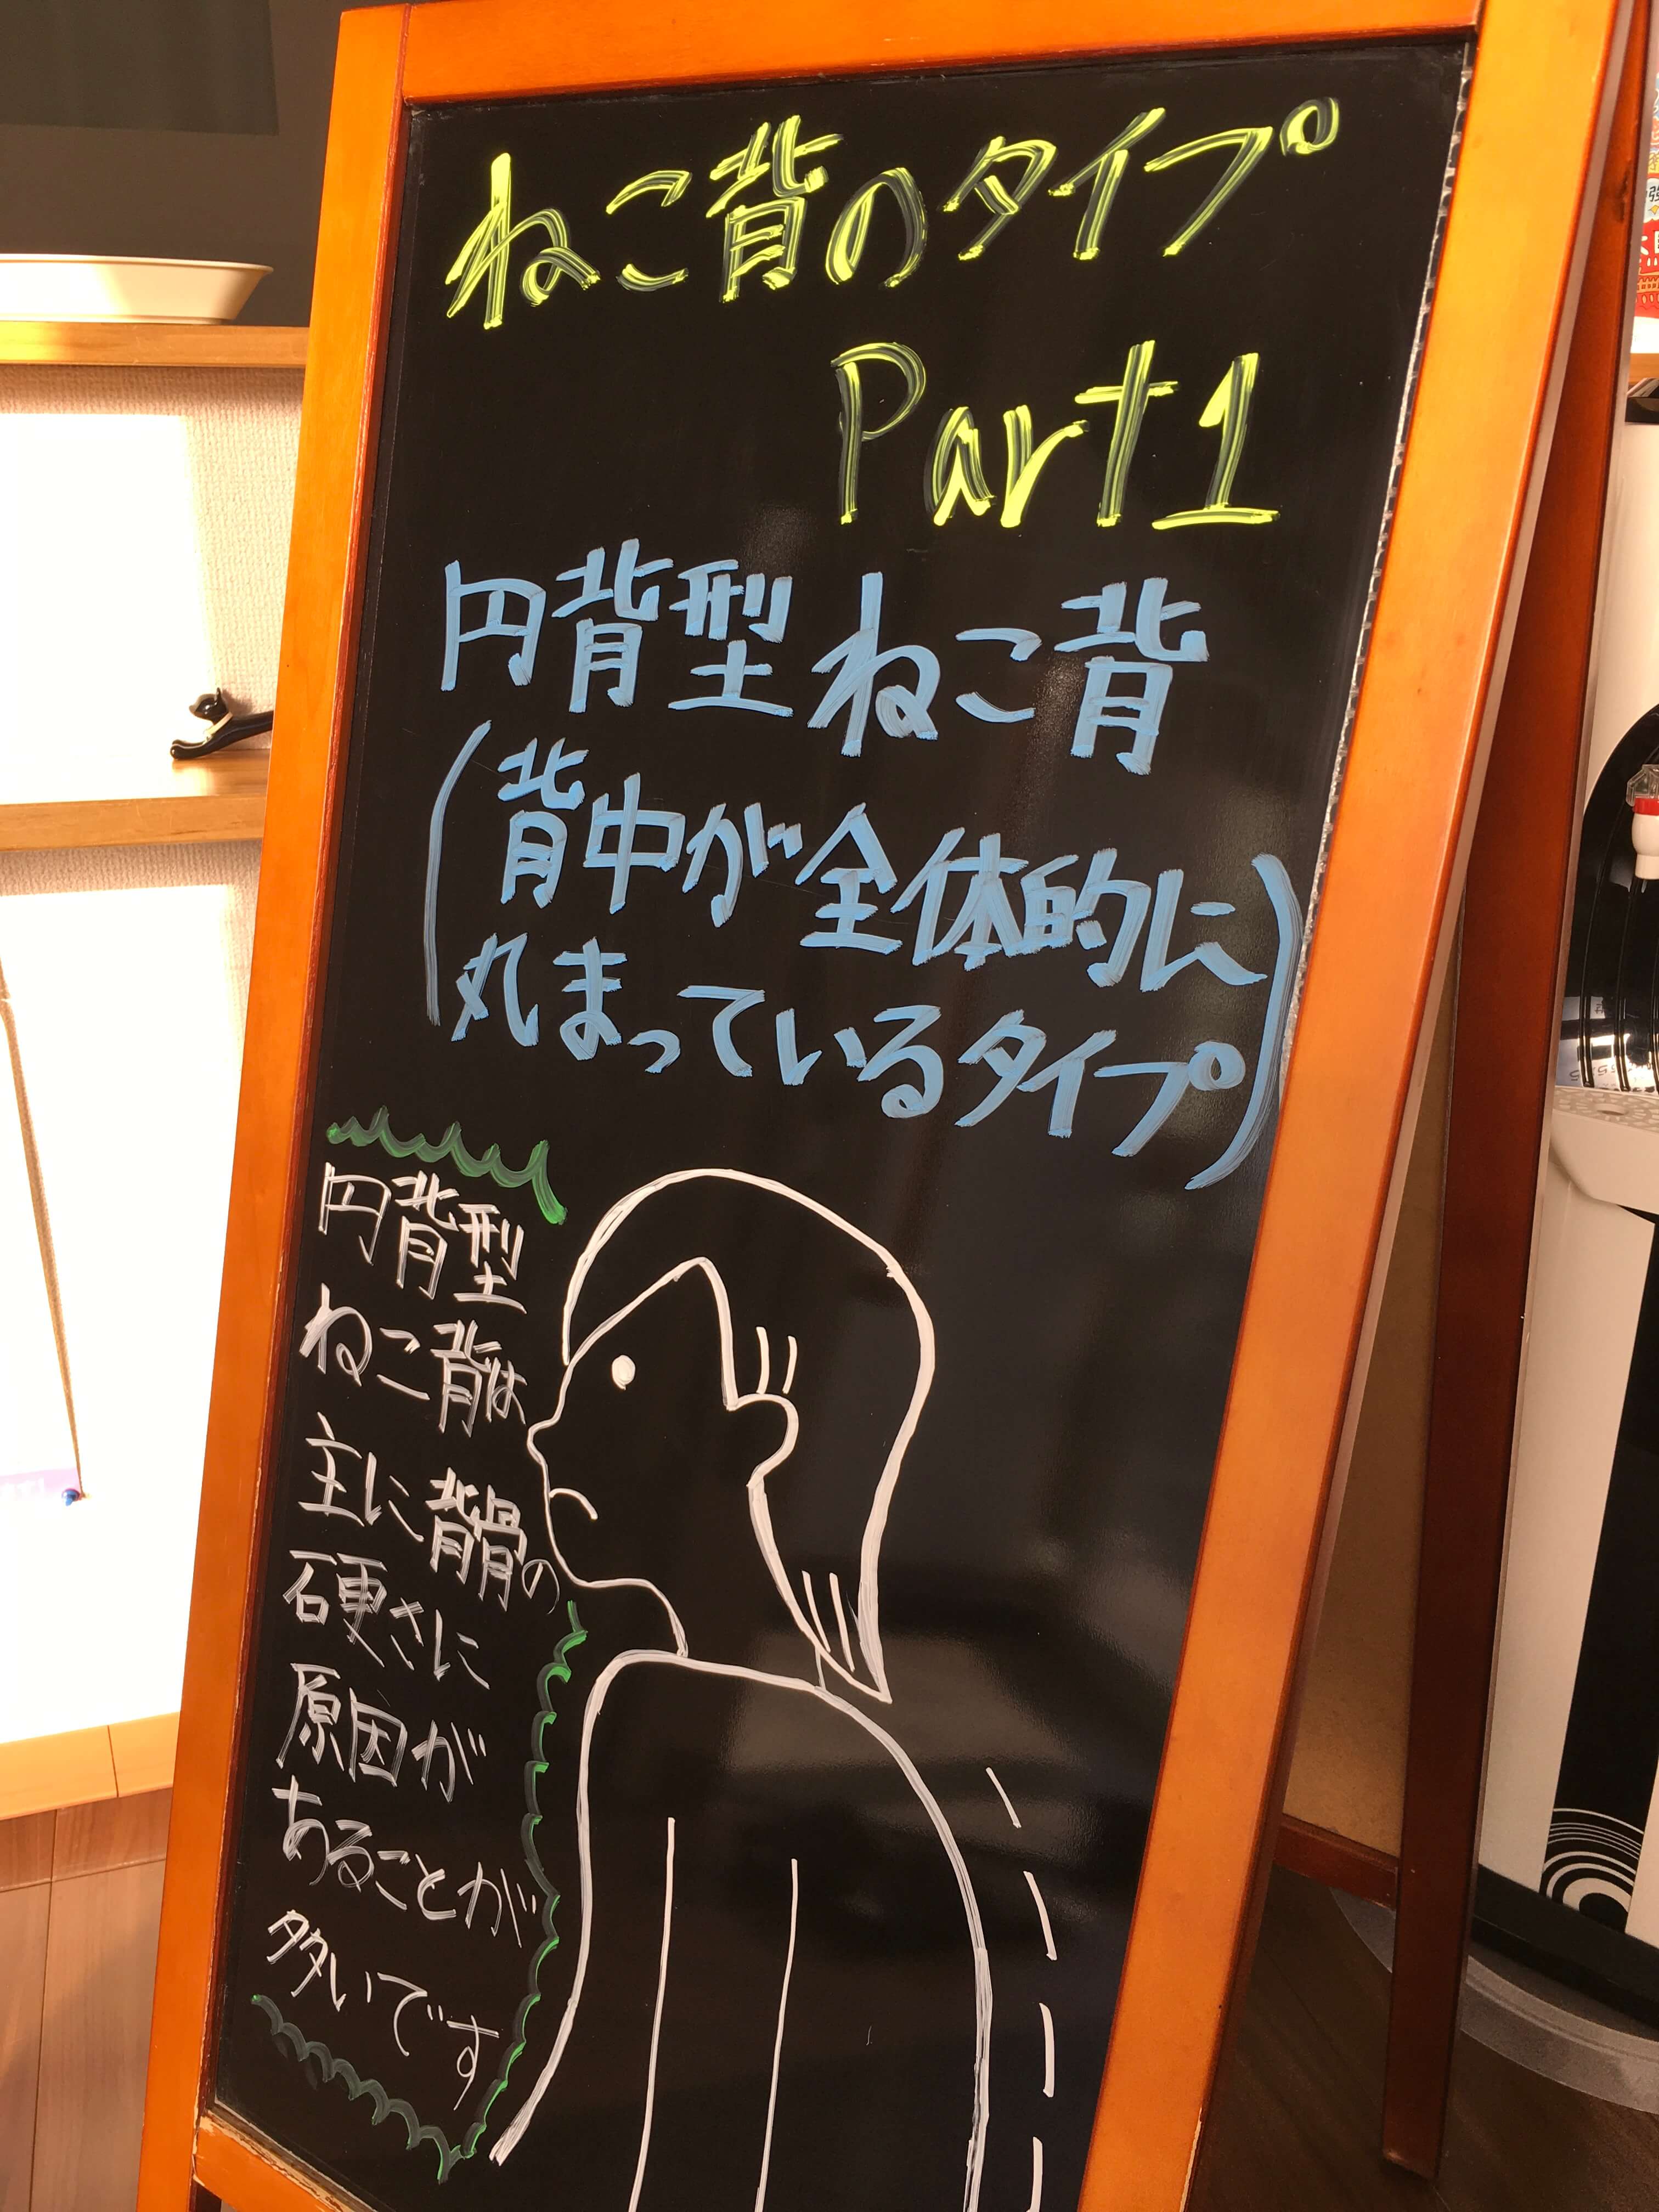 ねこ背のタイプ
Part1
円背型ねこ背
(背中が全体的に
丸まっているタイプ)
円背型
ねこ背は
主に背骨の
硬さに
原因が
あることが
多いです